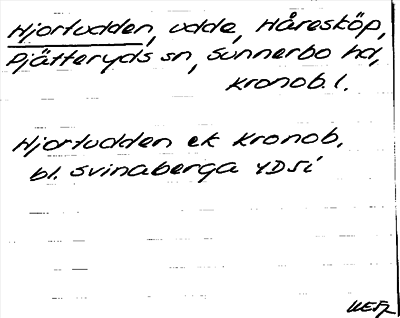 Hjortudden, udde, Håresköp,
Pjätteryds sn, Sunnerbo hd,
Kronob. l.
Hjortudden ek Kronob.
bl. Svinaberga